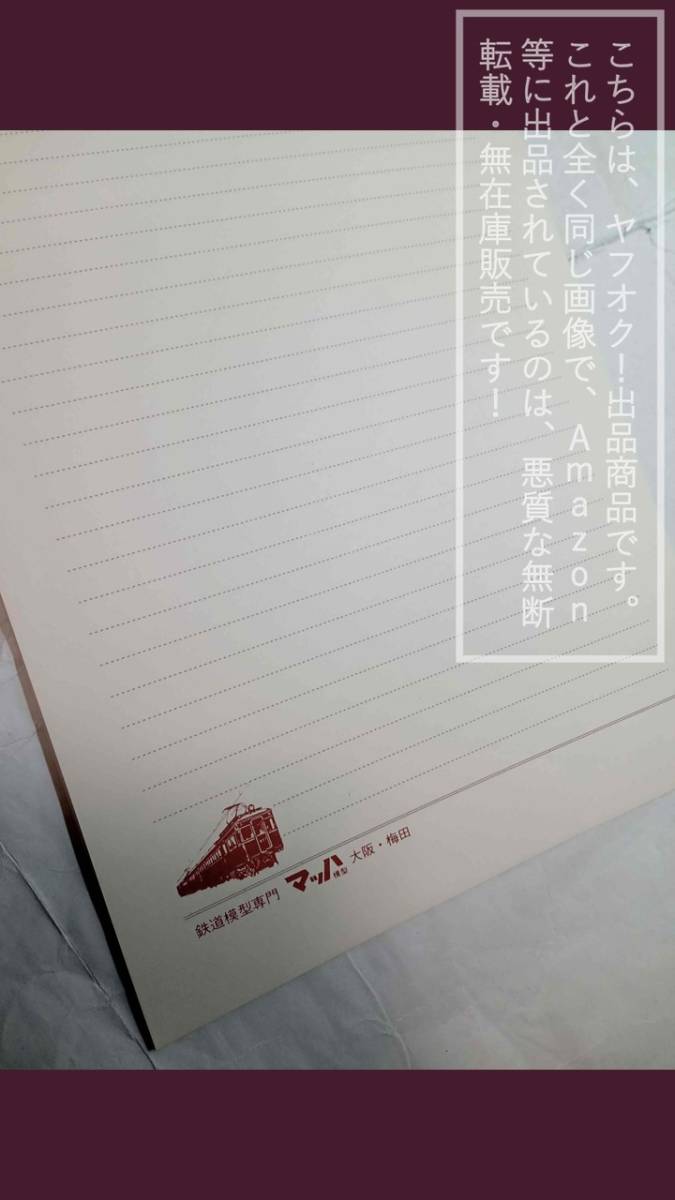 こちらは、ヤフオク!出品商品です。
これと全く同じ画像で、Amazon
等に出品されているのは、悪質な無断
転載・無在庫販売です!
鉄道模型専門 マッハ模型 大阪・梅田